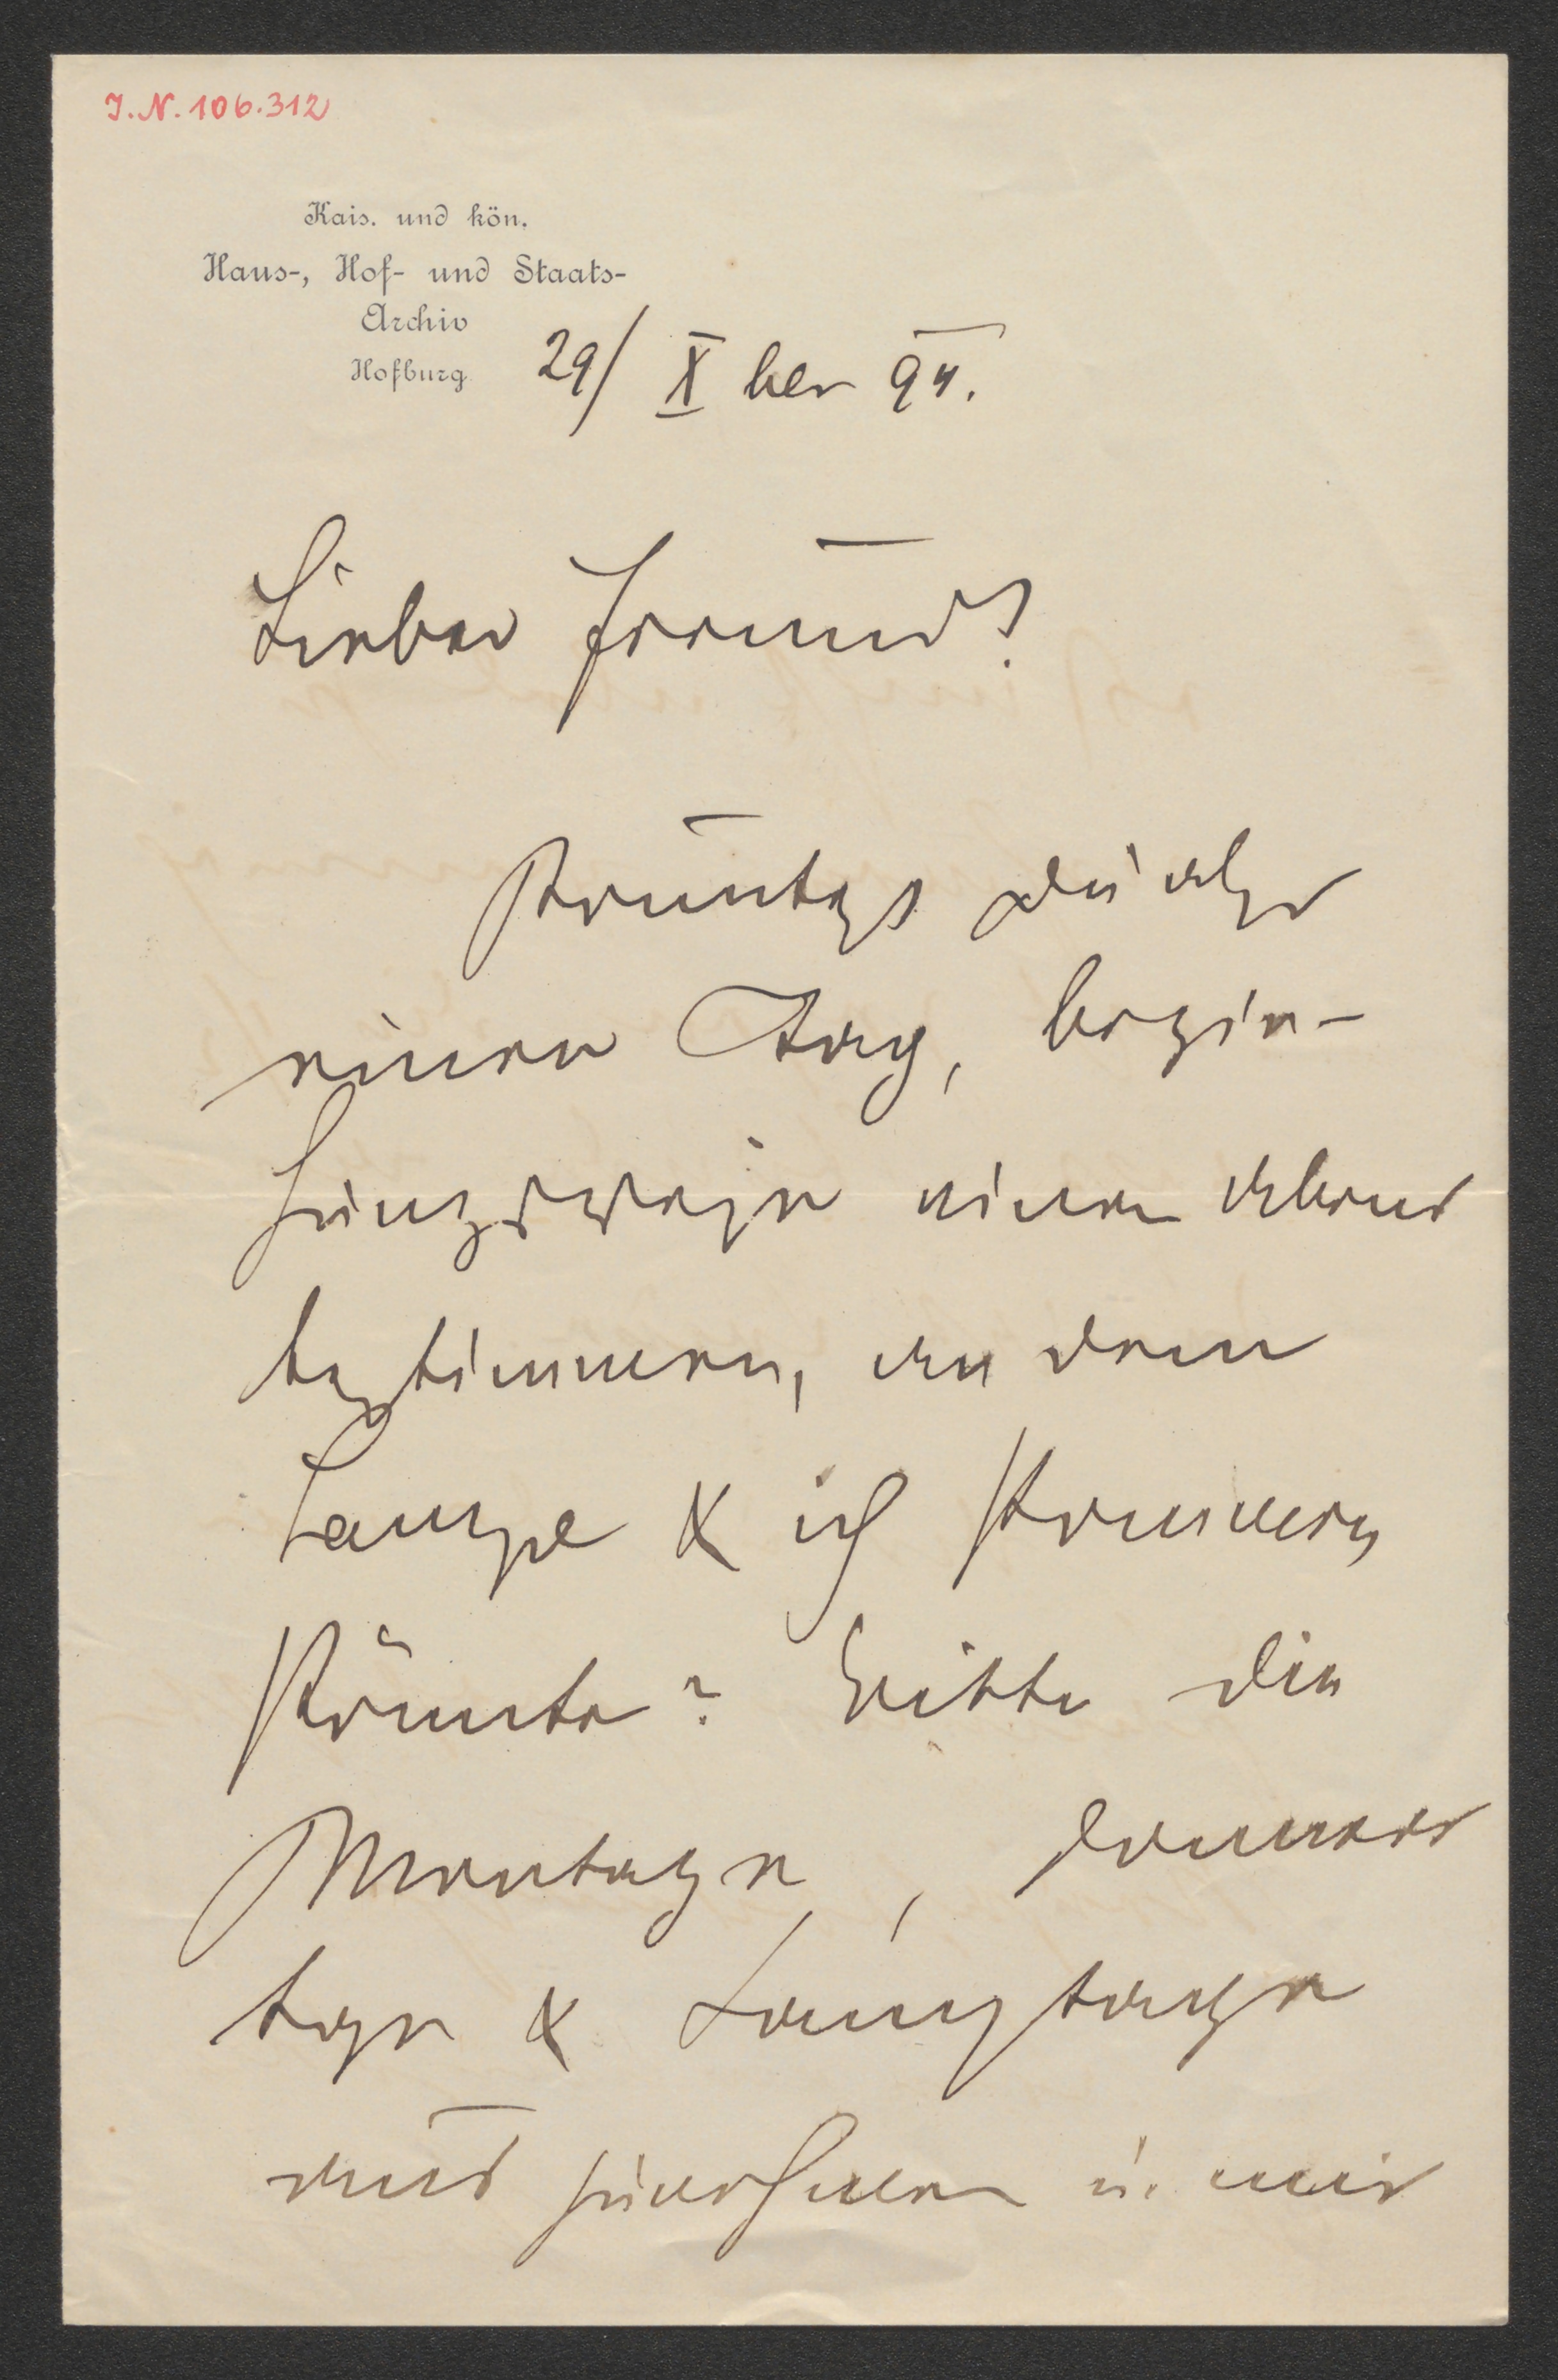 I.N. 106.312
Kais. und kön.
Haus-, Hof- und Staats-
Archiv
Hofburg
29/ X ber 94.
Lieber Freund!
Könntest Du
einen Tag, bezie-
hungsweise einen Abend
bestimmen, an dem
Lampe & ich kommen
könnte? Bitte die
Montage, Donners
tage & Samstage
auszunehmen u. mir